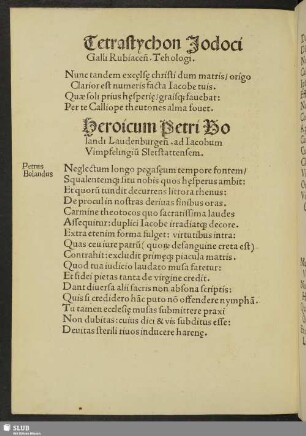 Tetrastychon Jodoci
Galli Rubiaceñ. Tehologi.
Nunc tandem excelsę christi dum matris / origo
Clarior est numeris facta Iacobe tuis.
Quæ soli prius hesperię / graisq; fauebat:
Per te Calliope theutones alma fouet.
Heroicum Petri Bo
landi Laudenburgeñ. ad Iacobum
Vimpfelingiũ Sletstattensem.
Petrus
Bolandus
Neglectum longo pegaseum tempore fontem /
Squalentemq; situ nobis quos hesperus ambit:
Et quorũ tundit decurrens littora rhenus:
De procul in nostras deriuas finibus oras.
Carmine theotocos quo sacratissima laudes
Assequitur: duplici Iacobe irradiatq; decore.
Extra etenim forma fulget: virtutibus intra:
Quas ceu iure patris (quoniã de sanguine creta est)
Contrahit: excludit primęq; piacula matris.
Quod tua iudicio laudato musa faretur:
Et fidei pietas tanta de virgine credit.
Dant diuersa alii sacris non absona scriptis:
Quis si credidero hâc puto nõ offendere nymphã.
Tu tamen ecclesię musas submittere praxi
Non dubitas: cuius dici & vis subditus esse:
Deuitas sterili riuos inducere harenę.
SLUB